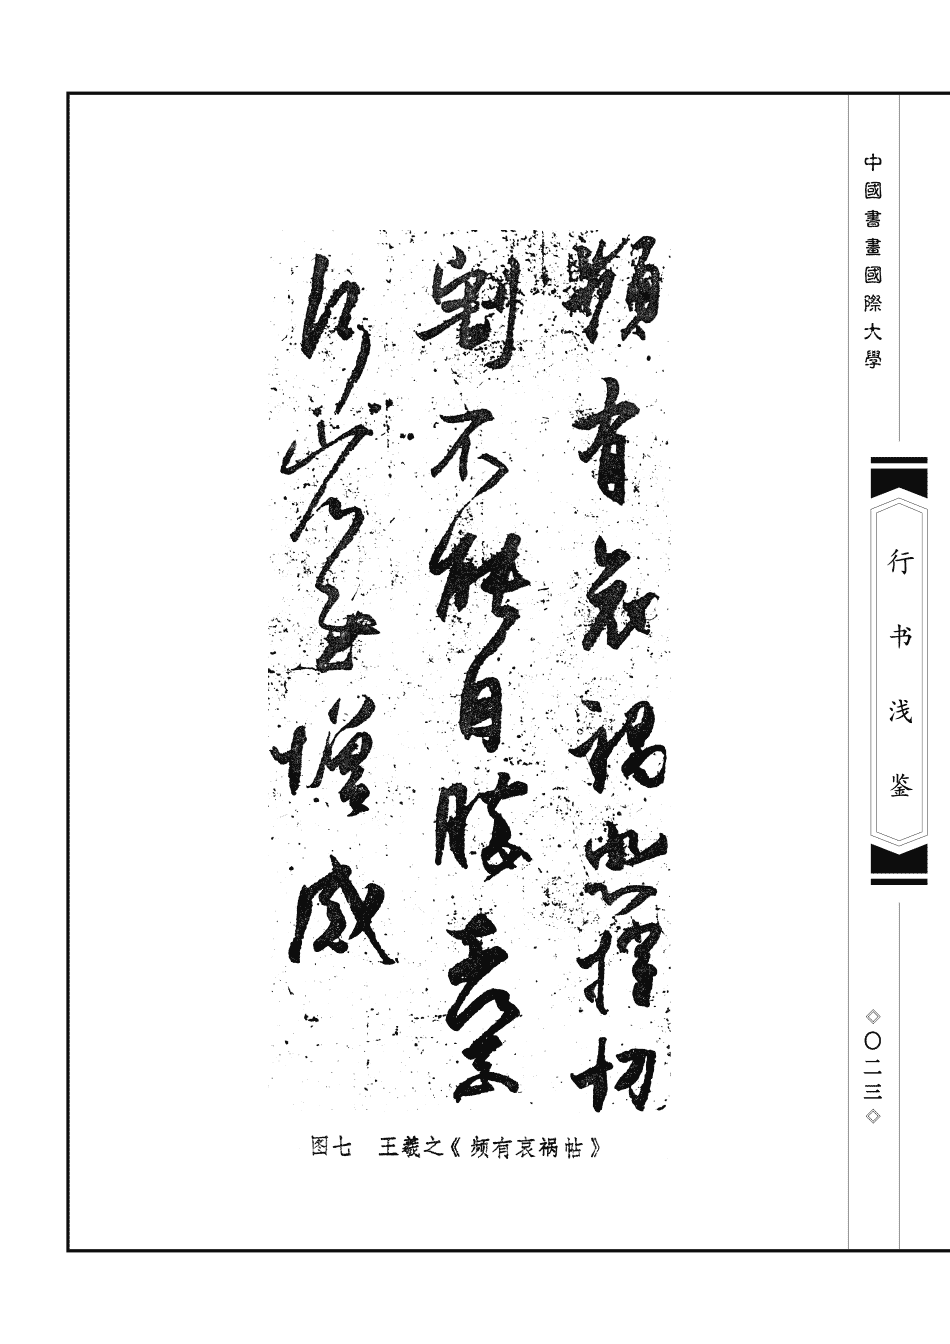 頻有哀禍悲摧切
割不能自勝奈
何奈何省慰增感
图七　王羲之《频有哀祸帖》
中國書畫國際大學
行书浅鉴
◇〇二三◇